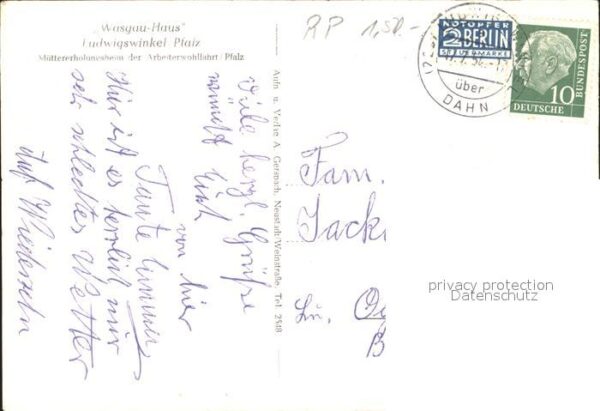 „Wasgau-Haus"
Ludwigswinkel Pfalz
Müttererholungsheim der Arbeiterwohlfahrt/Pfalz
RP 1,50.-
NOTOPFER
2 BERLIN
STEUERMARKE
über
DAHN
DEUTSCHE
BUNDESPOST
10
Viele herzl. Grüße
von hier
Tante
Hier ist es herrlich nur
sehr schlechtes Wetter
Auf Wiedersehn
Aufn. u. Verlag A. Gersbach, Neustadt/Weinstraße, Tel. 2518
Fam.
Jack
Privacy protection
Datenschutz